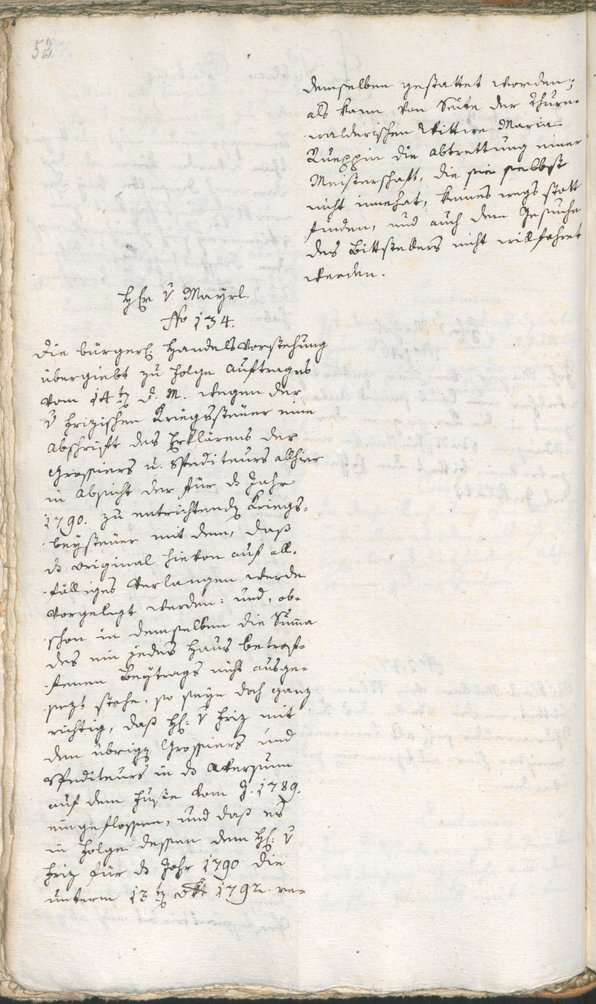 52
demselben gestattet worden;
als kann von Seite der Thurn-
walderischen Wittwe Maria
Rueppin die Abtrettung einer
Meisterschaft, die sie selbst
nicht innehat, keines wegs statt
finden, und auch dem Gesuche
des Bittstellers nicht willfahret
werden.
H: v Mayrl.
No 134.
Die bürgerl Handelsvorstehung
übergiebt zu Folge Auftrages
vom 14 d. M. wegen der
v Frizischen Kriegssteuer eine
Abschrift des Erklärens der
Grossiers u. Spediteurs allhier
in Absicht der für d Jahr
1790. zu entrichtenden Kriegs-
beysteuer mit dem, daß
d Original hievon auf all-
fälliges Verlangen werde
vorgelegt werden: und, ob-
schon in demselben die Summa
des ein jedes Haus betrof-
fenen Beytrags nicht ausge-
sezt stehe, so seye doch ganz
richtig, daß H: v Friz mit
den übrigen Grossiers und
Spediteurs in d Aversum
auf dem Fuße vom J. 1789.
eingeflossen, und daß es
in Folge dessen dem H: v
Friz für d Jahr 1790 die
unterm 13 Okt 1792. ver-